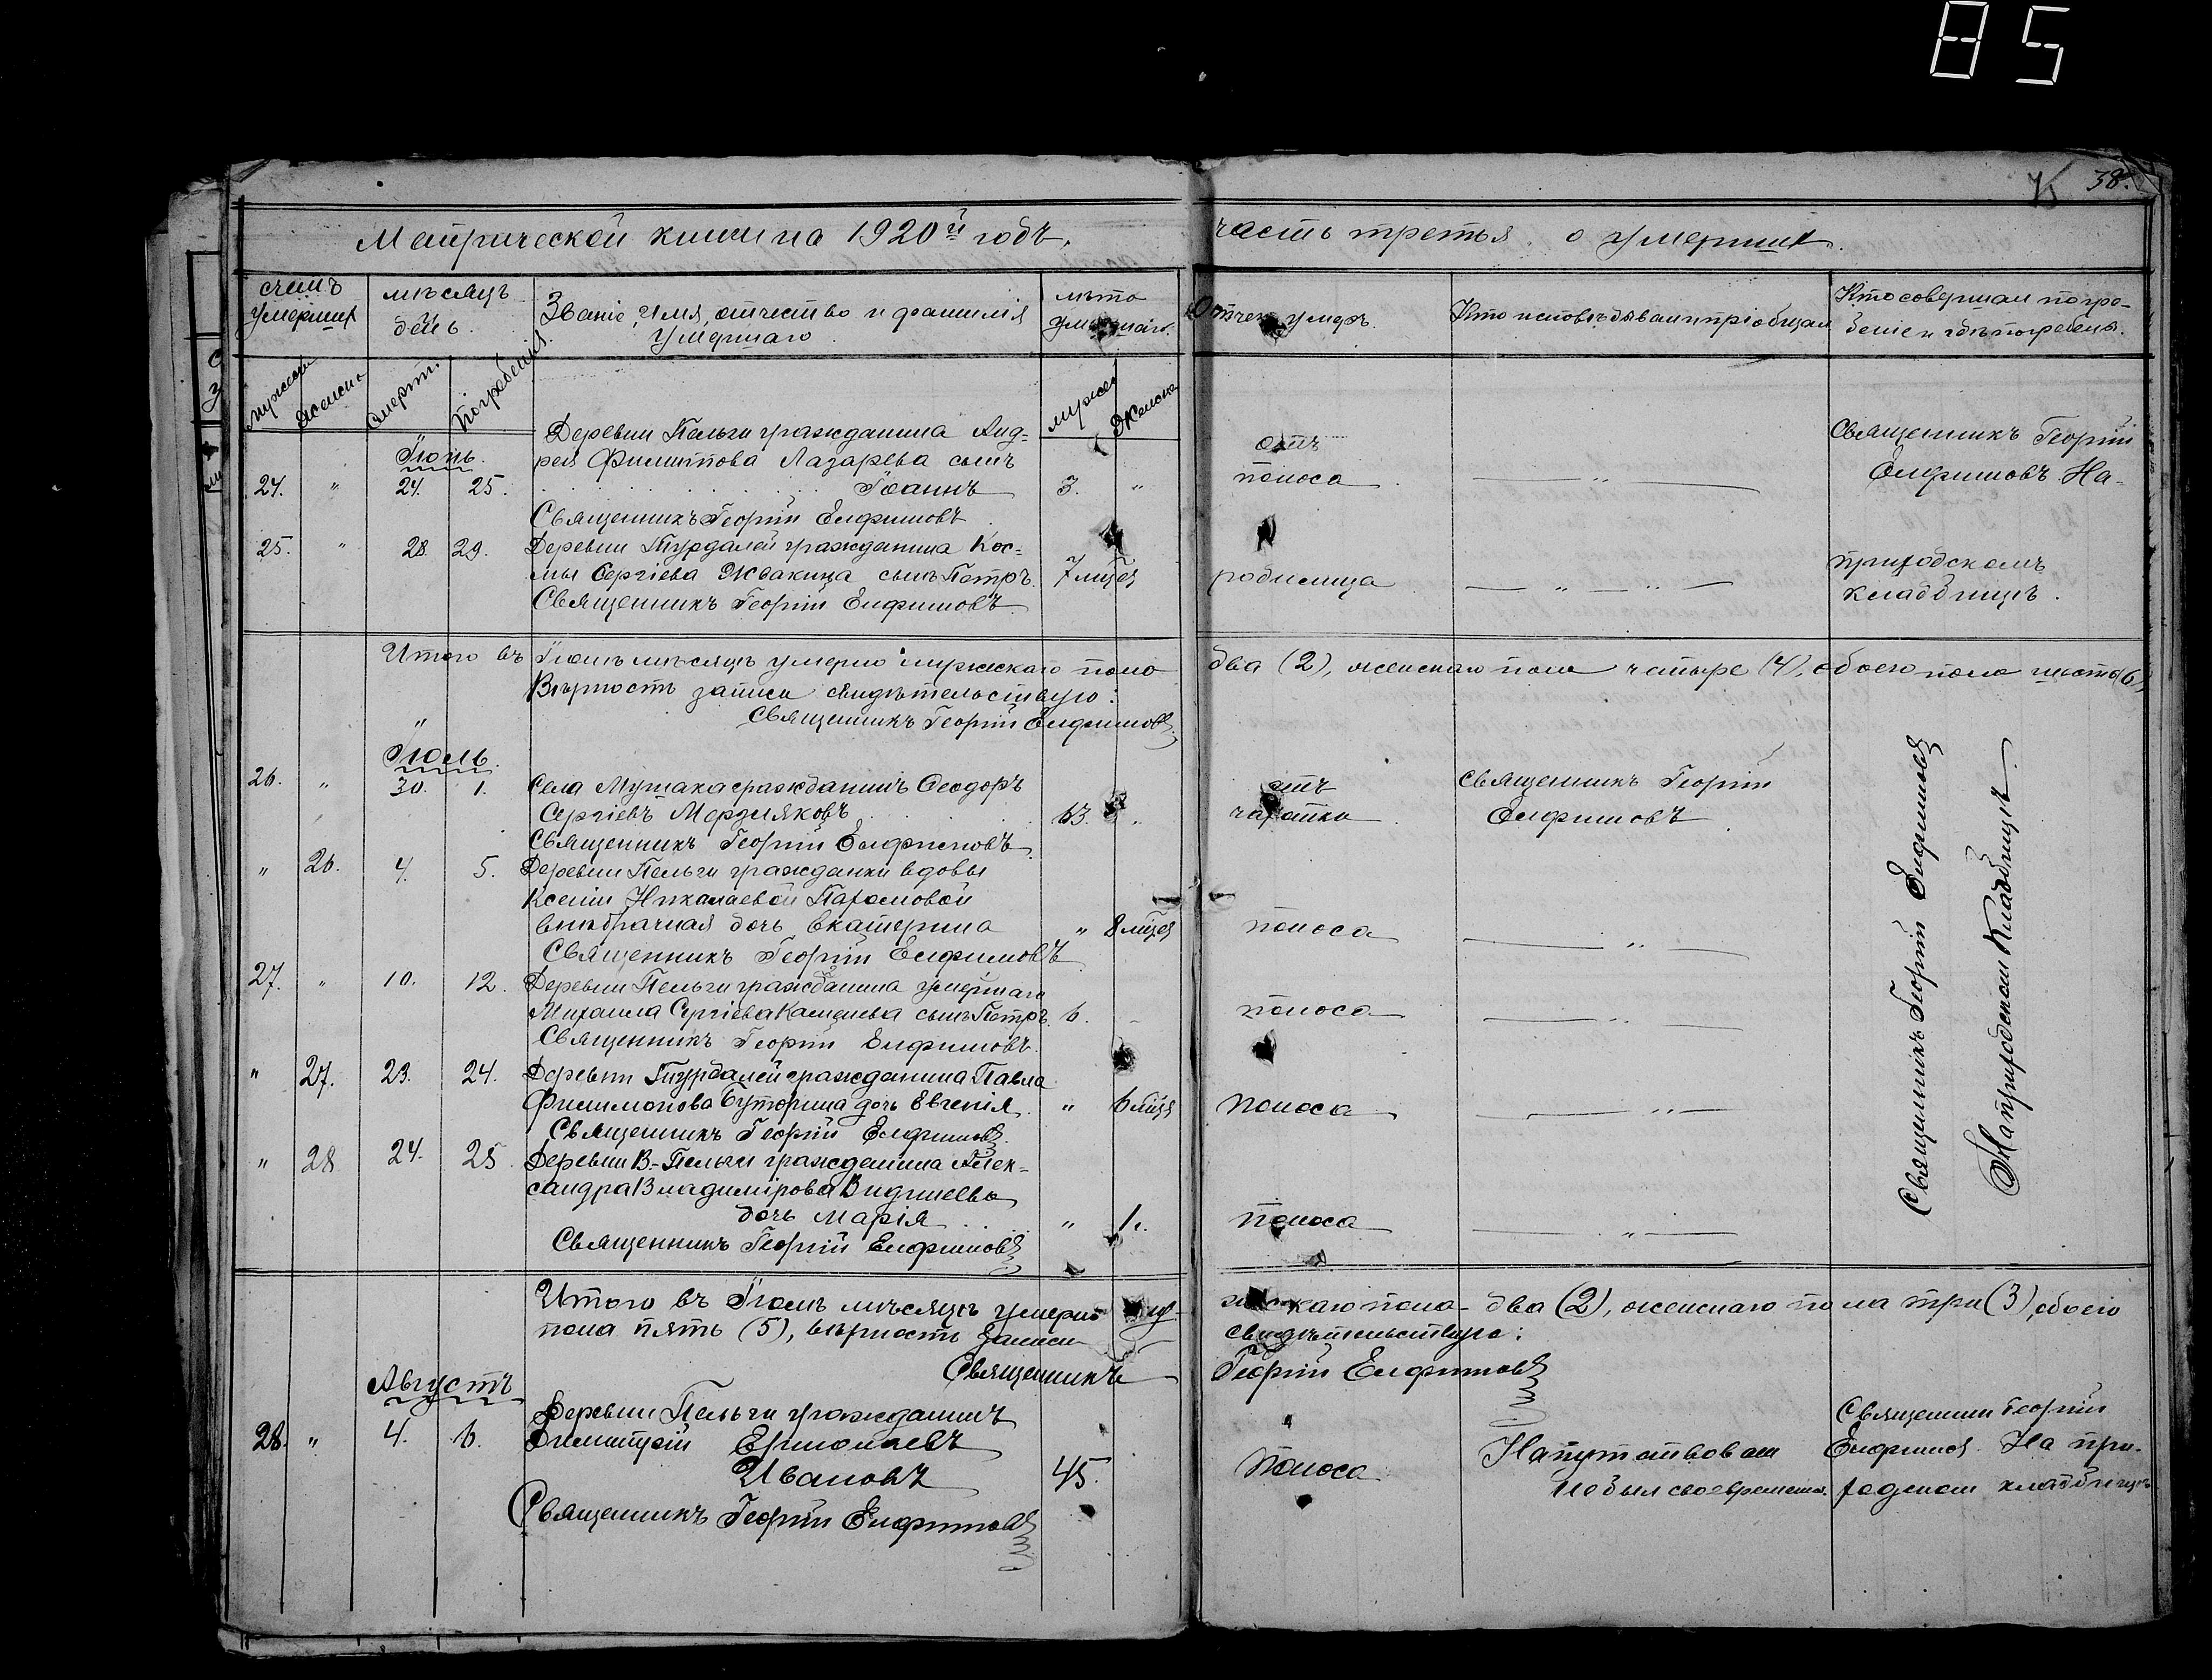 85
38.
Метрической книги на 1920й годъ,
часть третья о умершихъ.
счетъ умершихъ
мѣсяцъ день.
Званіе, имя, отчество и фамилія умершаго.
лѣта умершаго.
Отъ чего умеръ.
Кто исповѣдывалъ и пріобщалъ
Кто совершалъ погребеніе и гдѣ погребены.
мужеска
женска
смерти.
погребенія.
мужес
Женска
Іюнь.
Деревни Пельги гражданина Анд-
рея Филиппова Лазарева сынъ
24. " 24. 25. Іоаннъ 3. "
отъ
поноса — " —
Священникъ Георгій
Елфимовъ. На-
Священникъ Георгій Елфимовъ
25. " 28. 29. Деревни Турдалей гражданина Кос-
мы Сергіева Жвакина сынъ Петръ. 7 мѣсяц
родимица — " — " —
приходскомъ
кладбищѣ.
Священникъ Георгій Елфимовъ
Итого въ Іюнѣ мѣсяцѣ умерло мужскаго пола два (2), женскаго пола четыре (4), обоего пола шесть (6),
Вѣрность записи свидѣтельствую:
Священникъ Георгій Елфимовъ
"
Іюль.
26. " 30. 1. Села Мушака гражданинъ Ѳеодоръ
Сергіевъ Мерзляковъ 63.
отъ
чахотки
Священникъ Георгій
Елфимовъ
Священникъ Георгій Елфимовъ
" 26. 4. 5. Деревни Пельги гражданки вдовы
Ксеніи Николаевой Пахомовой
внѣбрачная дочь Екатерина " 8 мѣсяц
поноса — " —
Священникъ Георгій Елфимовъ
27. " 10. 12. Деревни Пельги гражданина умершаго
Михаила Сергіева Каменева сынъ Петръ. 6.
поноса — " —
Священникъ Георгій Елфимовъ.
" 27. 23. 24. Деревни Турдалей гражданина Павла
Филимонова Буторина дочь Евгенія " 6 мѣсяц
поноса — " —
Священникъ Георгій Елфимовъ
" 28 24. 25. Деревни В.-Пельги гражданина Алек-
сандра Владимірова
дочь Марія " 1.
поноса — " —
Священникъ Георгій Елфимовъ
Священникъ Георгій Елфимовъ
На приходскомъ кладбищѣ.
Итого въ Іюлѣ мѣсяцѣ умерло муж-
скаго пола два (2), женскаго пола три (3), обоего
пола пять (5), вѣрность записи
свидѣтельствую:
Священникъ Георгій Елфимовъ
Августъ
Деревни Пельги гражданинъ
28. " 4. 6. Димитрій Ермолаевъ
Ивановъ 45.
поноса
Напутствован
не был своевременно.
Священник Георгій
Елфимов. На при-
ходском кладбищѣ
Священникъ Георгій Елфимовъ